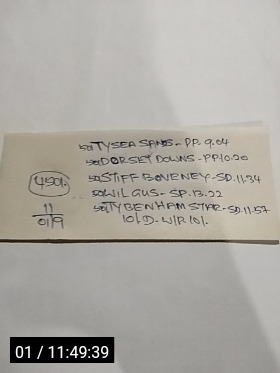 50/TYSEA SANDS-PP.9.04
50/DORSEY DOWNS-PP10.20
50/STIFF BOVENEY-SD.11.34
50/WIL GUS-SP.13.22
50/TYBENHAM STAR-SD.11.57
10/-D-W/R10/-
450/-
11
01/9
01 / 11:49:39